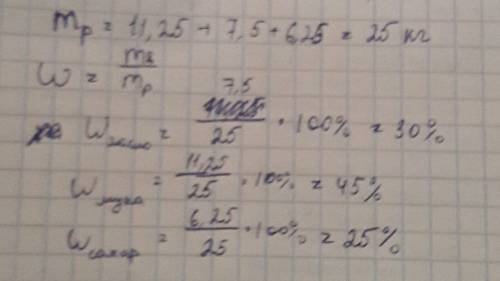 mр = 11,25 + 7,5 + 6,25 = 25 кг
ω = mв / mр
ω масло = 7,5 / 25 · 100% = 30%
ω мука = 11,25 / 25 · 100% = 45%
ω сахар = 6,25 / 25 · 100% = 25%